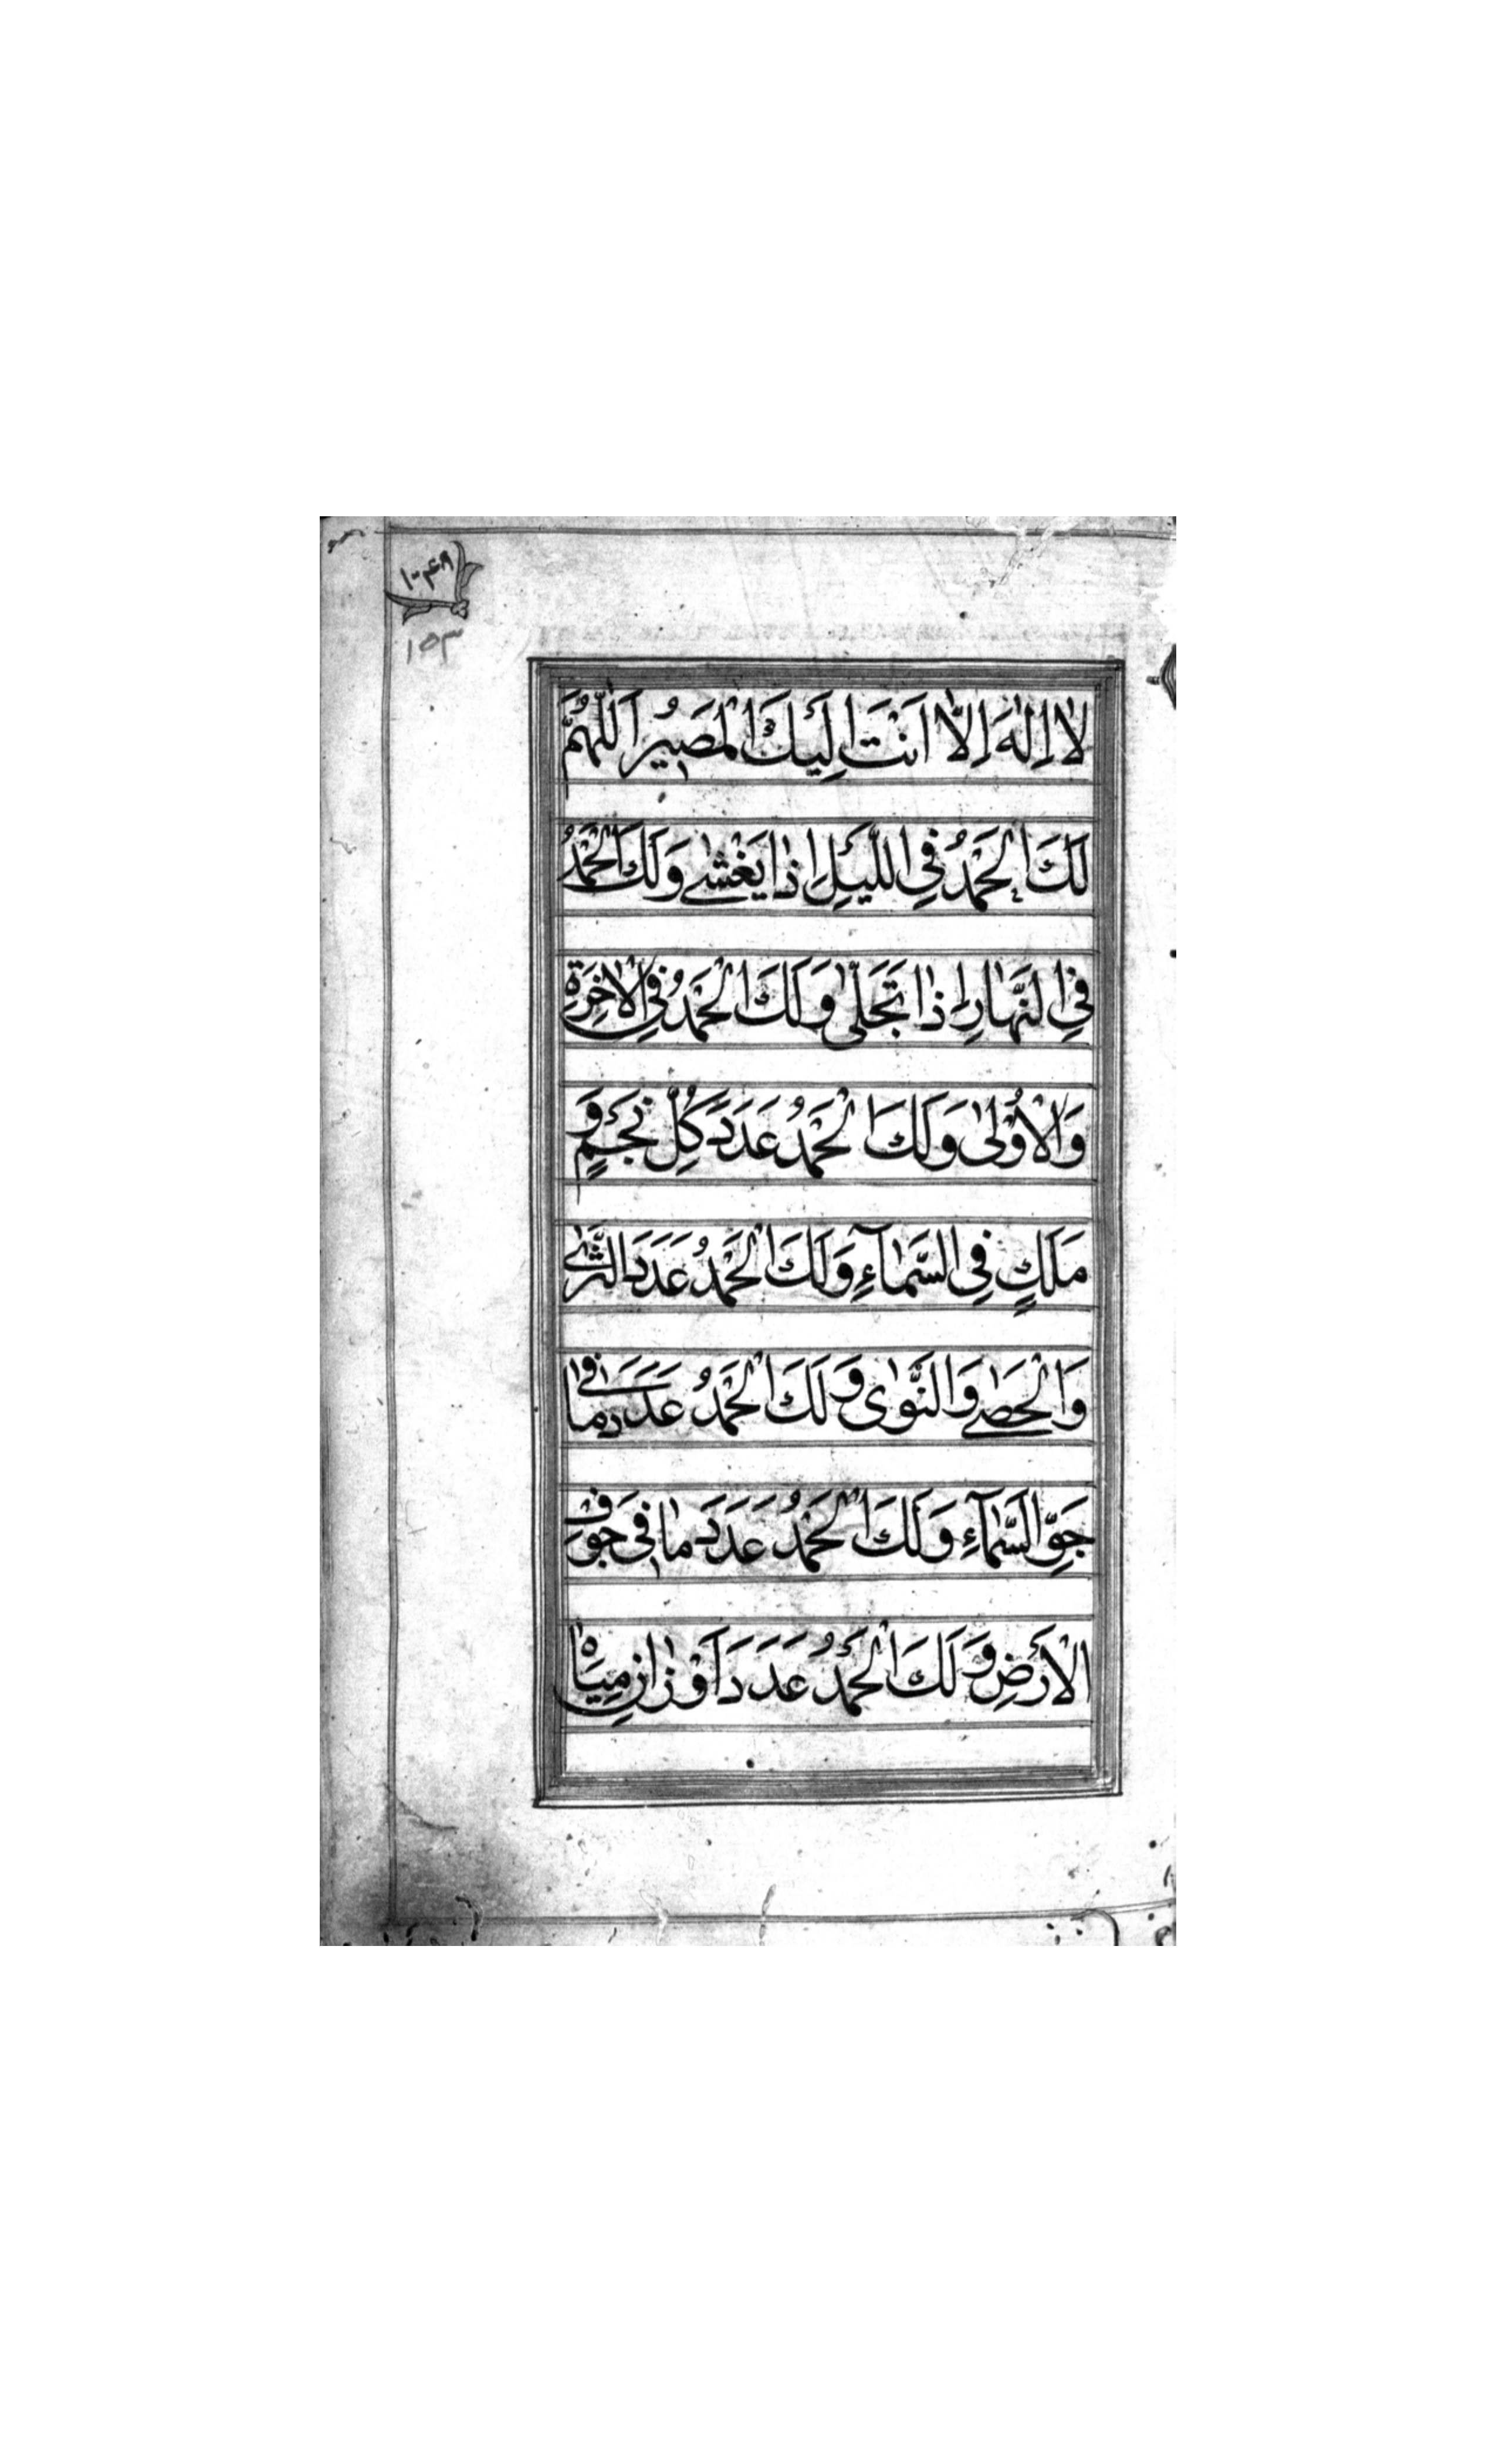 ١٥٣
لَا اِلٰهَ اِلَّا اَنْتَ اِلَيْكَ الْمَصِيْرُ اَللّٰهُمَّ
لَكَ الْحَمْدُ فِي اللَّيْلِ اِذَا يَغْشٰى وَلَكَ الْحَمْدُ
فِي النَّهَارِ اِذَا تَجَلّٰى وَلَكَ الْحَمْدُ فِي الْاٰخِرَةِ
وَالْاُوْلٰى وَلَكَ الْحَمْدُ عَدَدَ كُلِّ نَجْمٍ وَ
مَلَكٍ فِي السَّمَآءِ وَلَكَ الْحَمْدُ عَدَدَ الثَّرٰى
وَالْحَصٰى وَالنَّوٰى وَلَكَ الْحَمْدُ عَدَدَ مَا فِي
جَوِّ السَّمَآءِ وَلَكَ الْحَمْدُ عَدَدَ مَا فِي جَوْفِ
الْاَرْضِ وَلَكَ الْحَمْدُ عَدَدَ اَوْزَانِ مِيَاهِ